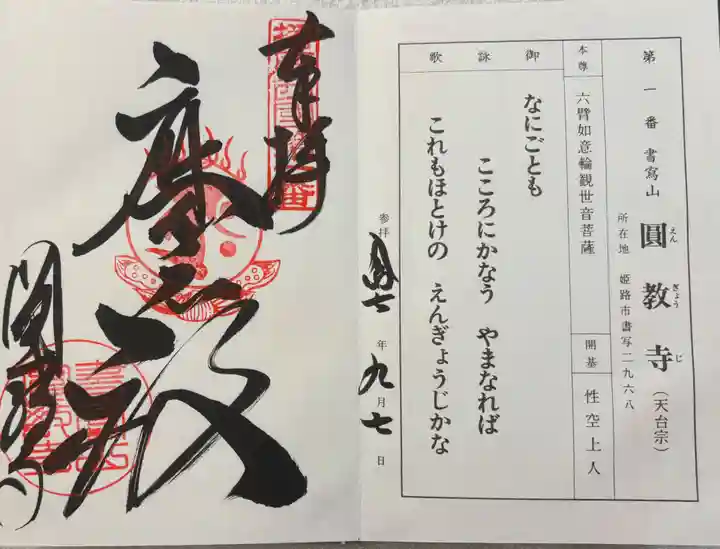 第一番 書寫山 圓教寺(天台宗)
えんぎょうじ
所在地 姫路市書写二九六八
本尊 六臂如意輪観世音菩薩
開基 性空上人
御詠歌
なにごとも
こころにかなう やまなれば
これもほとけの えんぎょうじかな
参拝 年九月七日
奉拝
摩尼殿
圓教寺